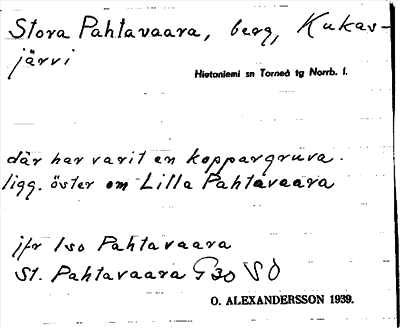 Stora Pahtavaara, berg, Kukas-
järvi
Hietaniemi sn Torneå tg Norrb. l.
där har varit en koppargruva.
ligg. öster om Lilla Pahtavaara
jfr Iso Pahtavaara
St. Pahtavaara G30 SO
O. ALEXANDERSSON 1939.